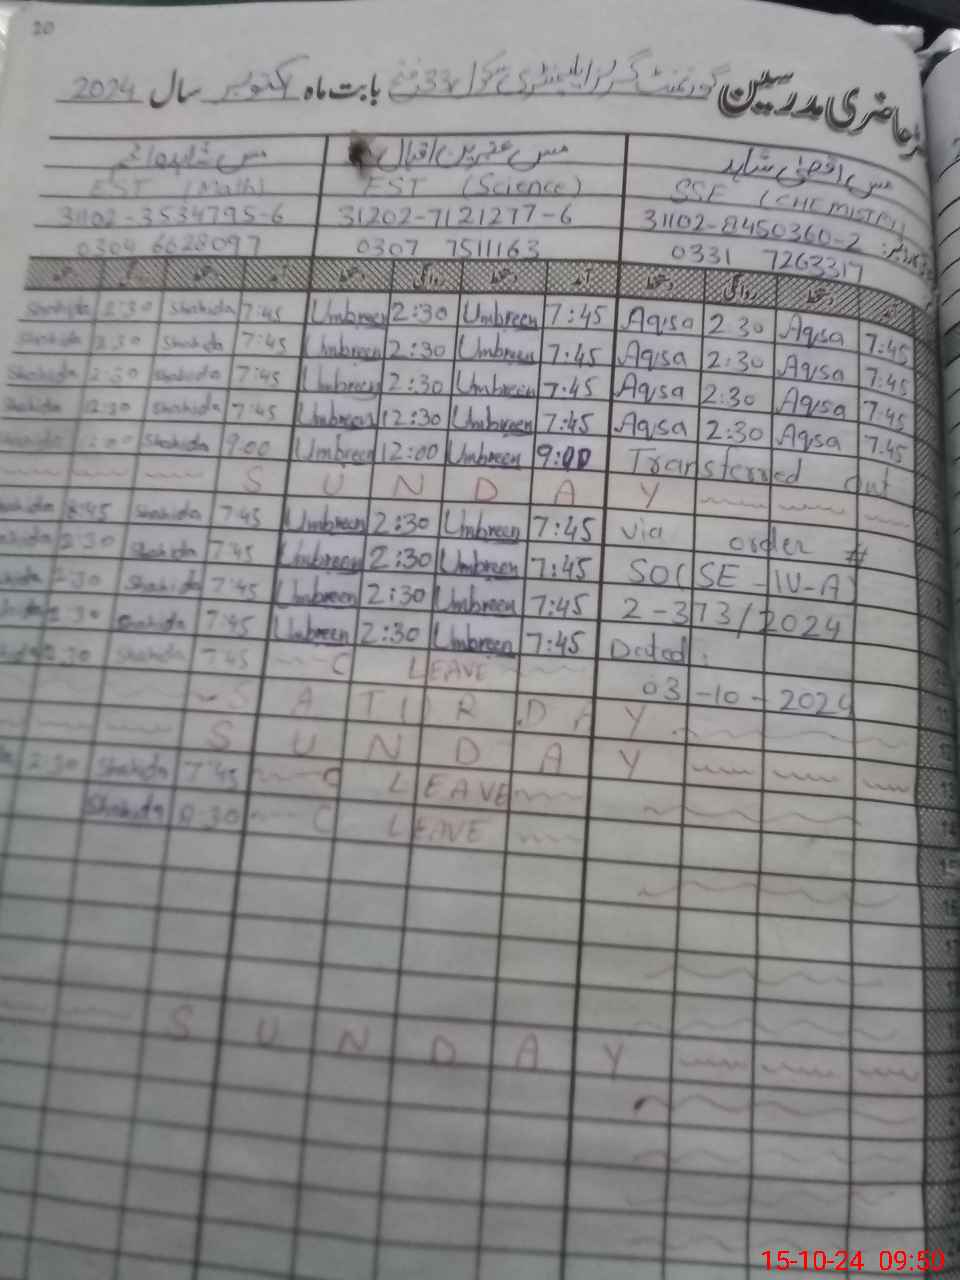 20
حاضری مدرسین گورنمنٹ گرلز ایلیمنٹری سکول 33 بابت ماہ اکتوبر سال 2024
مس اقصیٰ شاہد مس عنبرین اقبال مس شاہدہ
SSE (CHEMISTRY) EST (Science) EST (Math)
31102-8450360-2 31202-7121277-6 31102-3534795-6
0331 7263317 0307 7511163 0304 6628097
آمد دستخط روانگی دستخط آمد دستخط روانگی دستخط آمد دستخط
Shahida 2:30 Shahida 7:45 Umbreen 2:30 Umbreen 7:45 Aqsa 2:30 Aqsa 7:45
Shahida 2:30 Shahida 7:45 Umbreen 2:30 Umbreen 7:45 Aqsa 2:30 Aqsa 7:45
Shahida 2:30 Shahida 7:45 Umbreen 2:30 Umbreen 7:45 Aqsa 2:30 Aqsa 7:45
Shahida 12:30 Shahida 7:45 Umbreen 12:30 Umbreen 7:45 Aqsa 2:30 Aqsa 7:45
Shahida 9:00 Umbreen 12:00 Umbreen 9:00 Transferred out
S U N D A Y
7:45 Umbreen 2:30 Umbreen 7:45 via order #
2:30 Shahida 7:45 Umbreen 2:30 Umbreen 7:45 SO(SE-IV-A)
2:30 Shahida 7:45 Umbreen 2:30 Umbreen 7:45 2-373/2024
2:30 Shahida 7:45 Umbreen 2:30 Umbreen 7:45 Dated:
2:30 Shahida 7:45 C LEAVE 03-10-2024
S A T U R D A Y
S U N D A Y
2:30 Shahida 7:45 C LEAVE
Shahida 8:30 C LEAVE
S U N D A Y
15-10-24 09:50